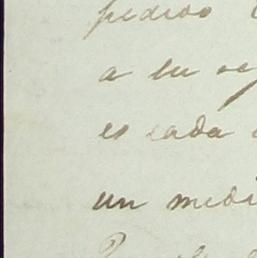 pedido
a su se
es cada
un medi